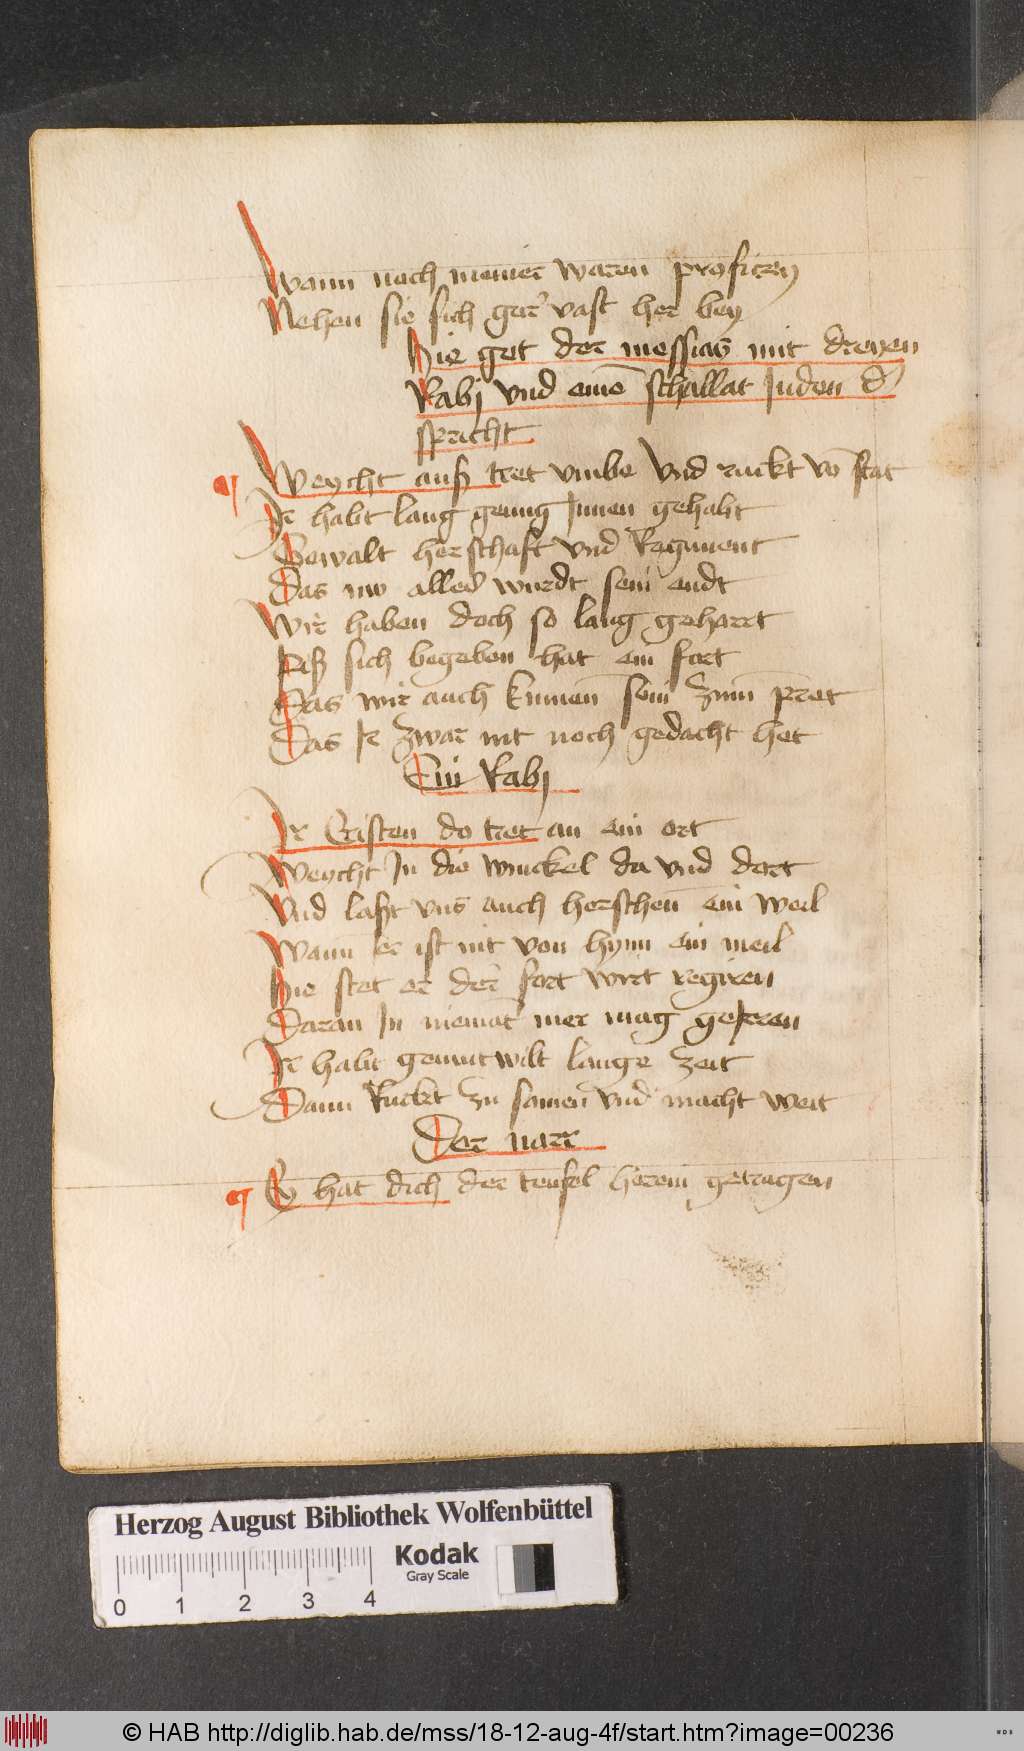 Wann noch meiner waren profitey
Nehen sie sich gar vast her bey
Hie get der messias mit dreyen
Rabj vnd eine͂ schallat Juden d͂
spricht
Weycht auß tret vmbe vnd ruckt vo͂ stat
Ir habt lang genug Innen gehabt
Gewalt herschaft vnd Regiment
Das nw alles wurdt sein endt
Wir haben doch so lang geharrt
Piß sich begeben hat ein fart
Das wir auch kumen sein zum pret
Das Ir zwar nit noch gedacht het
Ein Rabj
Ir Cristen do tret an ein ort
Weycht In die winckel da vnd dort
Vnd laßt vns auch herschen ein weil
Wann er ist nit von hynn ein meil
Hie stet er der fort wirt regiren
Daran In niemant mer mag geJrren
Ir habt gemutwilt lange zeit
Dann Ruckt zu samen vnd macht weit
Der narr
Ey hat dich der teufel herein getragen
Herzog August Bibliothek Wolfenbüttel
Kodak
Gray Scale
0 1 2 3 4
© HAB http://diglib.hab.de/mss/18-12-aug-4f/start.htm?image=00236